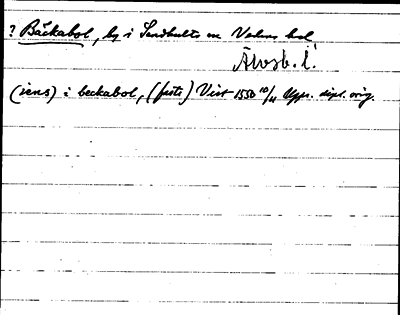 ? Bäckabol, by i Sandhults sn Vedens hd
Älvsb. l.
(iens) i beckabol, (faste) Visit 1550 10/11 Uppr. dipl. orig.